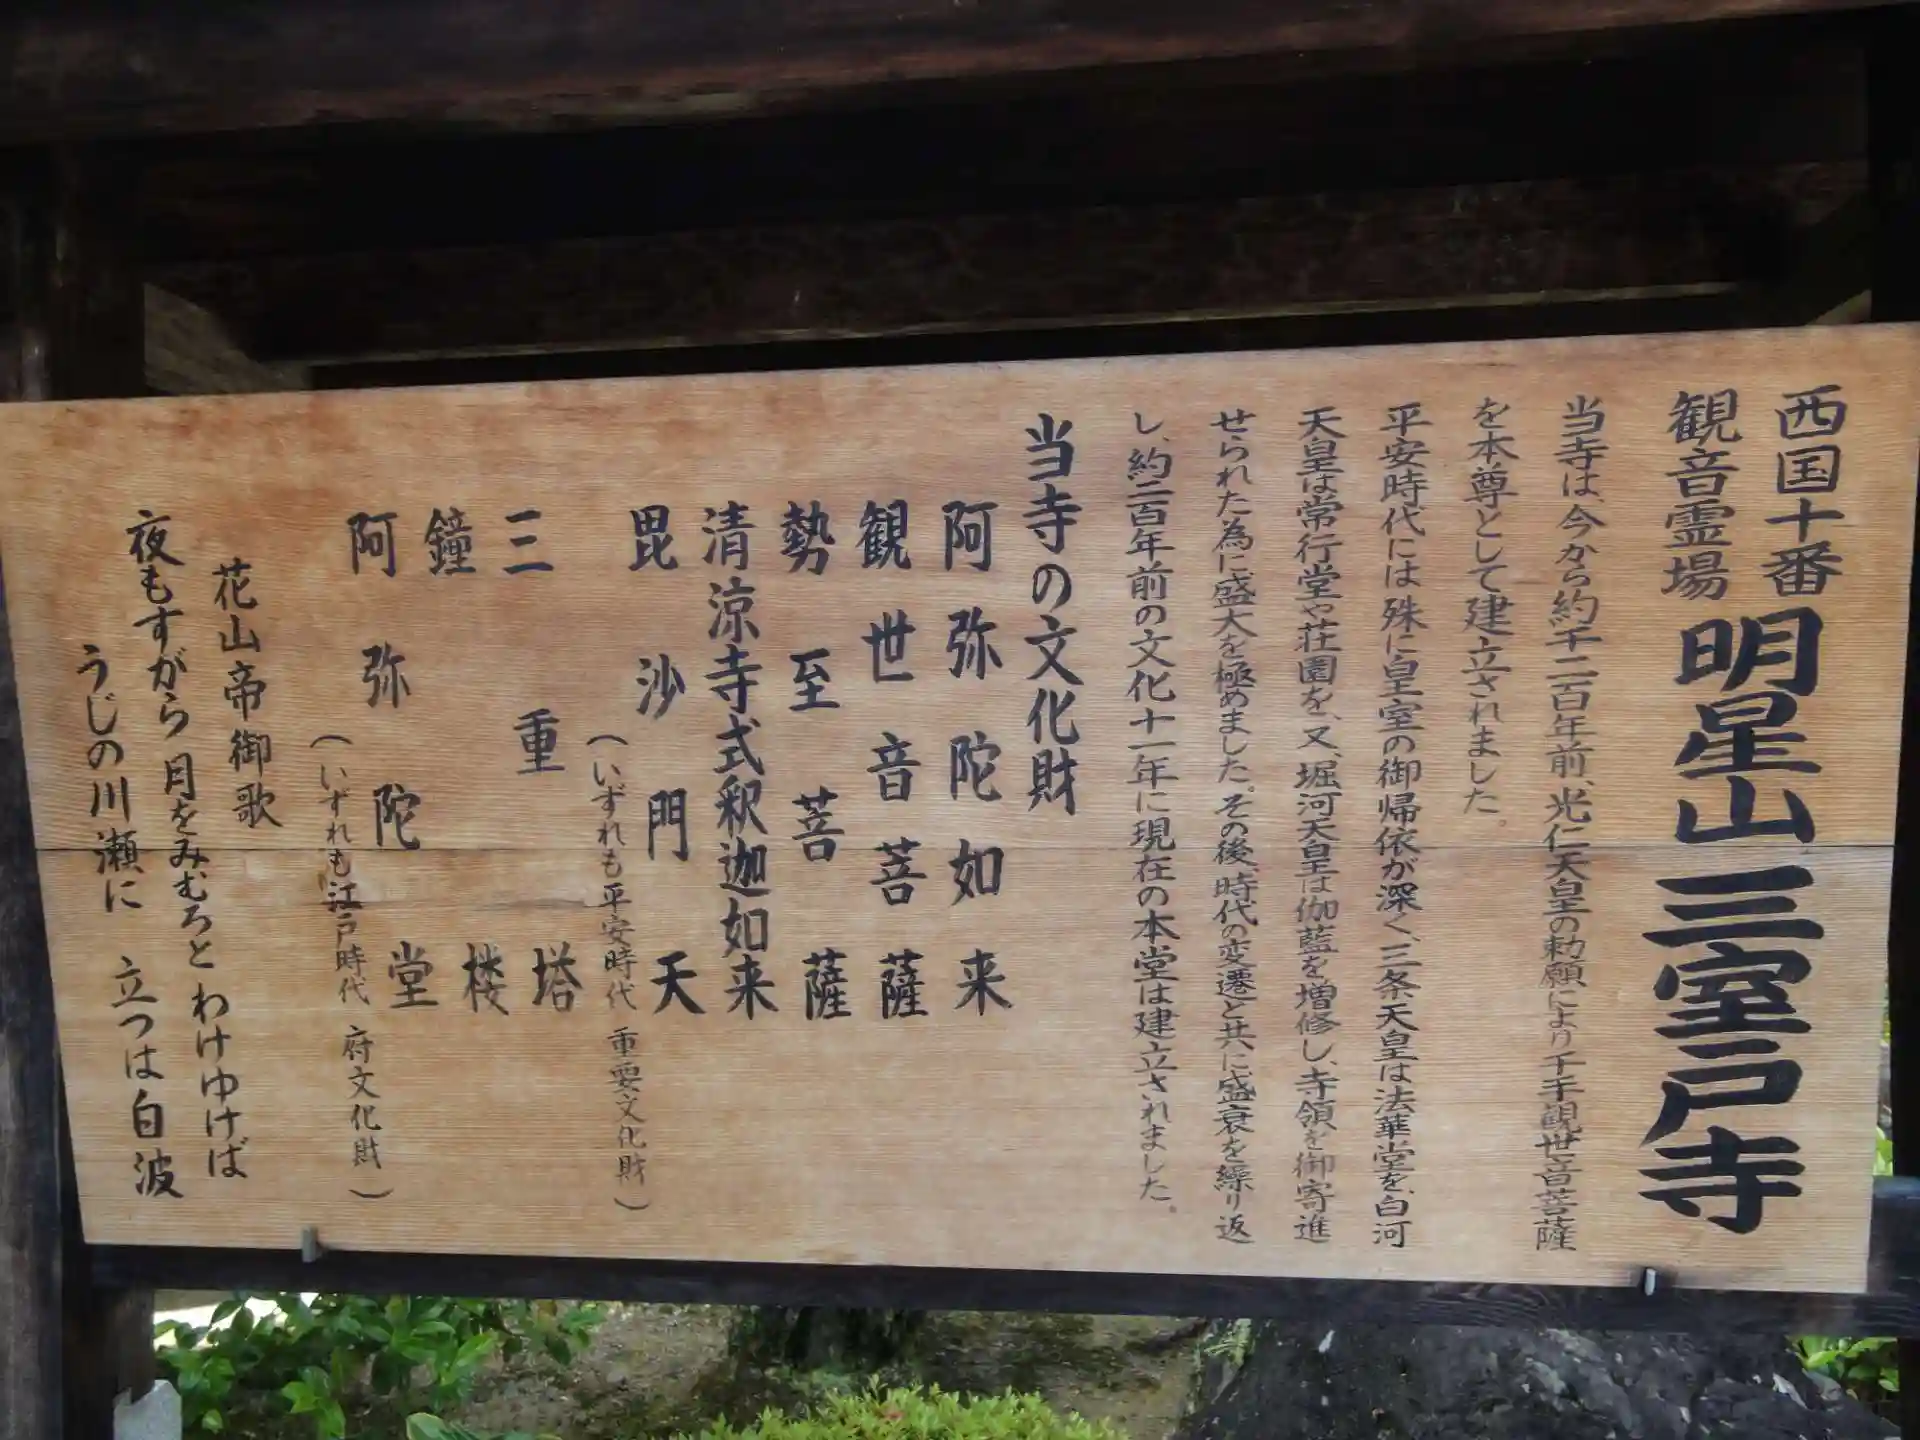 西国十番
観音霊場
明星山三室戸寺
当寺は、今から約千二百年前、光仁天皇の勅願により千手観世音菩薩
を本尊として建立されました。
平安時代には殊に皇室の御帰依が深く、三条天皇は法華堂を、白河
天皇は常行堂や荘園を、又、堀河天皇は伽藍を増修し、寺領を御寄進
せられた為に盛大を極めました。その後、時代の変遷と共に盛衰を繰り返
し、約二百年前の文化十一年に現在の本堂は建立されました。
当寺の文化財
阿弥陀如来
観世音菩薩
勢至菩薩
清涼寺式釈迦如来
毘沙門天
(いずれも平安時代 重要文化財)
三重塔
鐘楼
阿弥陀堂
(いずれも江戸時代 府文化財)
花山帝御歌
夜もすがら 月をみむろと わけゆけば
うじの川瀬に 立つは白波